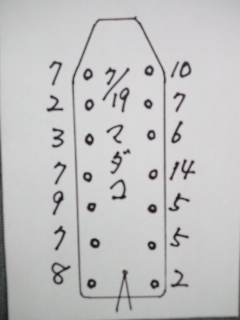 7 7/19 10
2 7
3 マ 6
7 ダ 14
9 コ 5
7 5
8 2